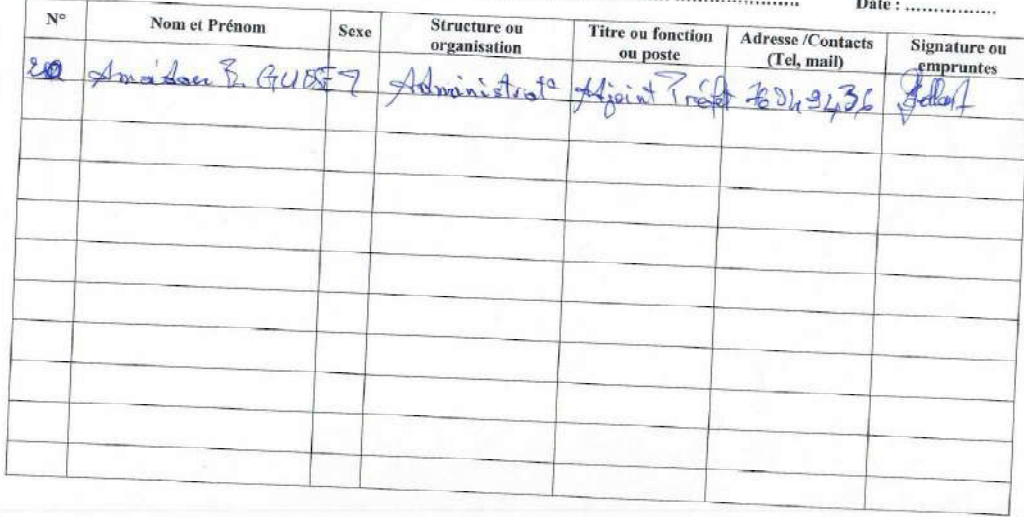 Date : ................
N° Nom et Prénom Sexe Structure ou organisation Titre ou fonction ou poste Adresse /Contacts (Tel, mail) Signature ou empruntes
20 Amadou Administrat° Adjoint Préfet